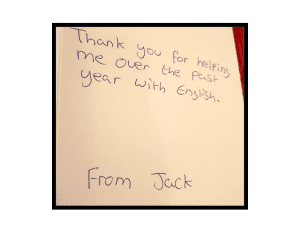 Thank you for helping
me over the past
year with English.
From Jack